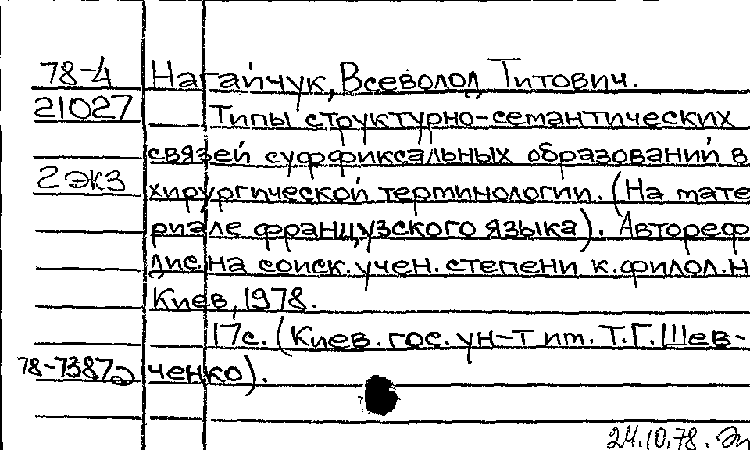 78-4 Нагайчук, Всеволод Титович.
21027 Типы структурно-семантических
связей суффиксальных образований в
2 экз хирургической терминологии. (На мате
риале французского языка). Автореф
дис. на соиск. учен. степени к. филол. н
Киев, 1978.
17с. (Киев. гос. ун-т им. Т.Г. Шев-
78-7387а ченко).
24.10.78.